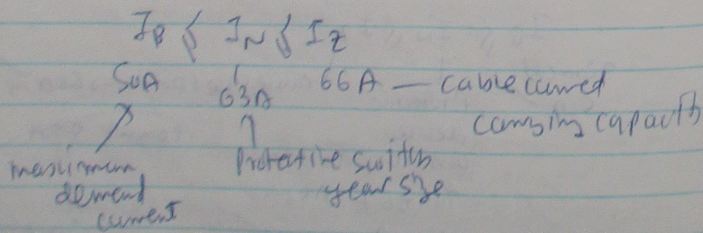 I_B ≤ I_N ≤ I_Z
50A 63A 66A — cable current
carrying capacity
maximum
demand
current
Protective switch
gear size